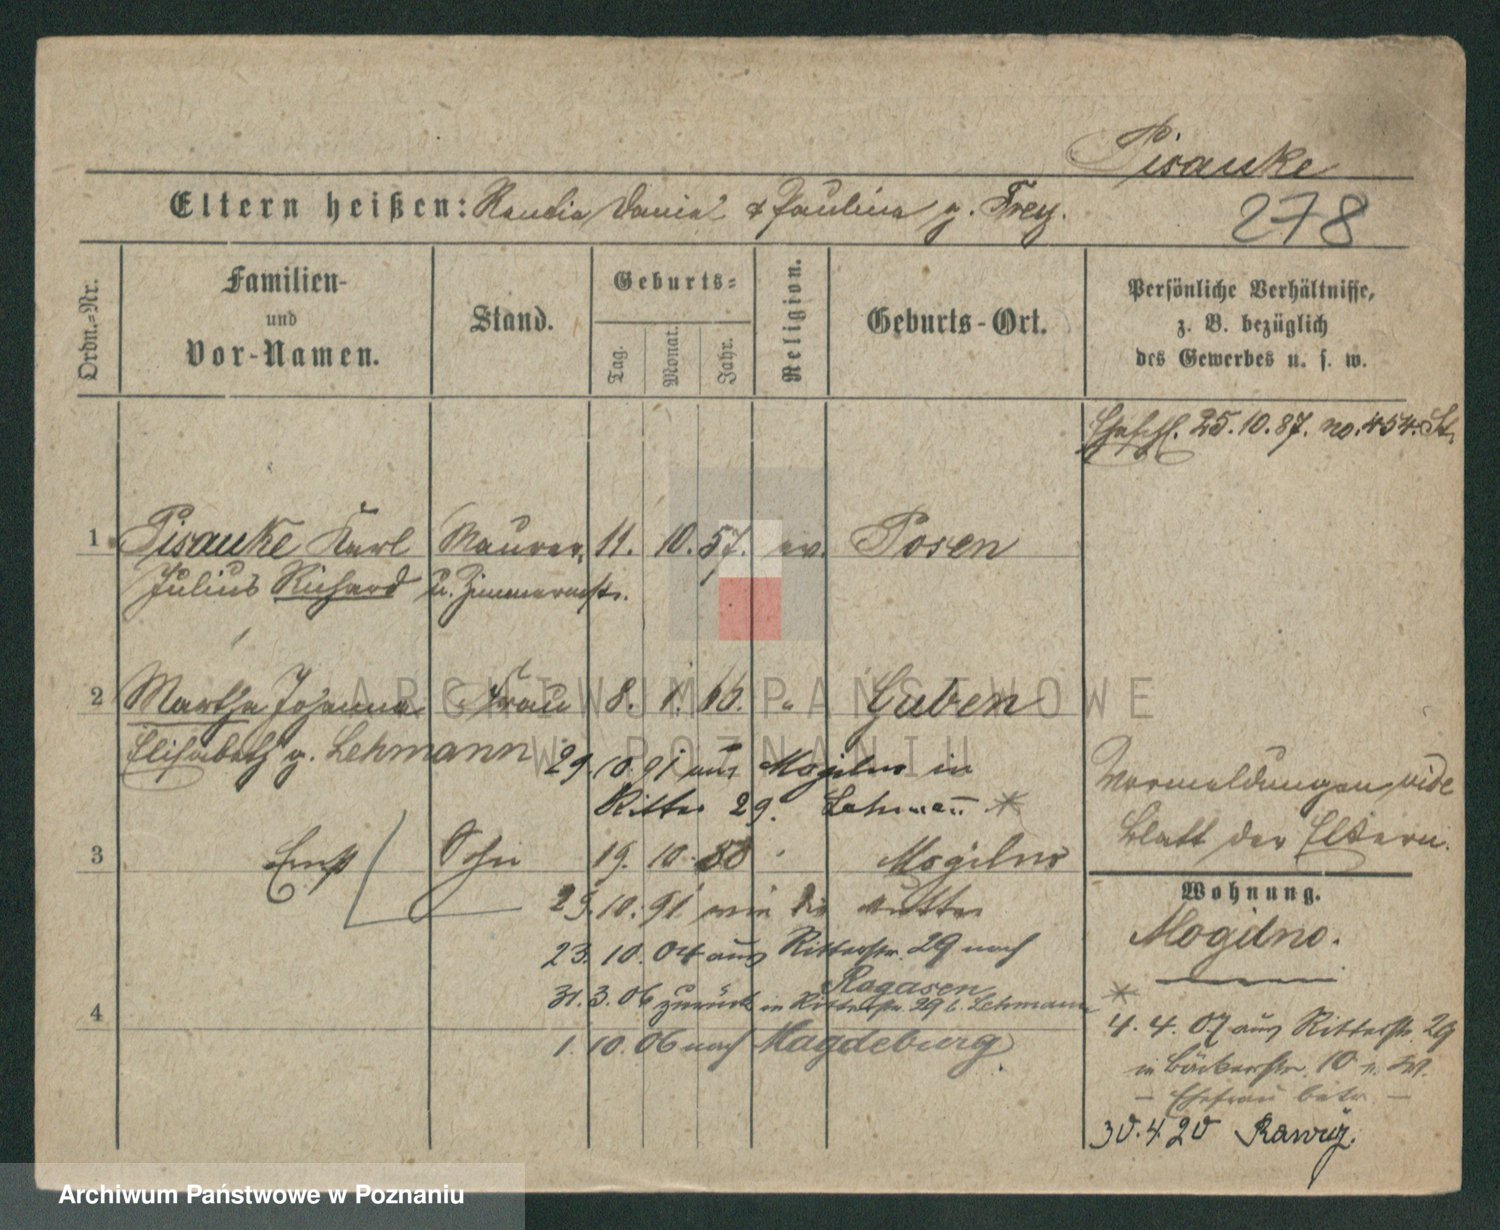 Pisauke
Eltern heißen: Daniel & Paulina g. Frey.
278
Ordn.-Nr.
Familien-
und
Vor-Namen.
Stand.
Geburts-
Tag.
Monat.
Jahr.
Religion.
Geburts-Ort.
Persönliche Verhältnisse,
z. B. bezüglich
des Gewerbes u. s. w.
Eheschl. 25.10.87. no. 454. St.
1 Pisauke Karl Maurer 11. 10. 57. ev. Posen
Julius Richard u. Zimmermstr.
2 Martha Johanna Frau 8. 1. 66. " Guben
Elisabeth g. Lehmann
29. 10. 91 aus Mogilno in
Ritter 29. Lehmann *
Vormeldungen vide
Blatt der Eltern.
3 Ernst Sohn 19. 10. 88 " Mogilno
25. 10. 91 wie die Mutter
23. 10. 04 aus Ritterstr. 29 nach
Rogasen
31. 3. 06 zurück in Ritterstr. 29 b. Lehmann
4
1. 10. 06 nach Magdeburg
Wohnung.
Mogilno.
*
4. 4. 07 aus Ritterstr. 29
in Bäckerstr. 10 n. W.
- Ehefrau betr. -
30.4.20
ARCHIWUM PAŃSTWOWE
W POZNANIU
Archiwum Państwowe w Poznaniu